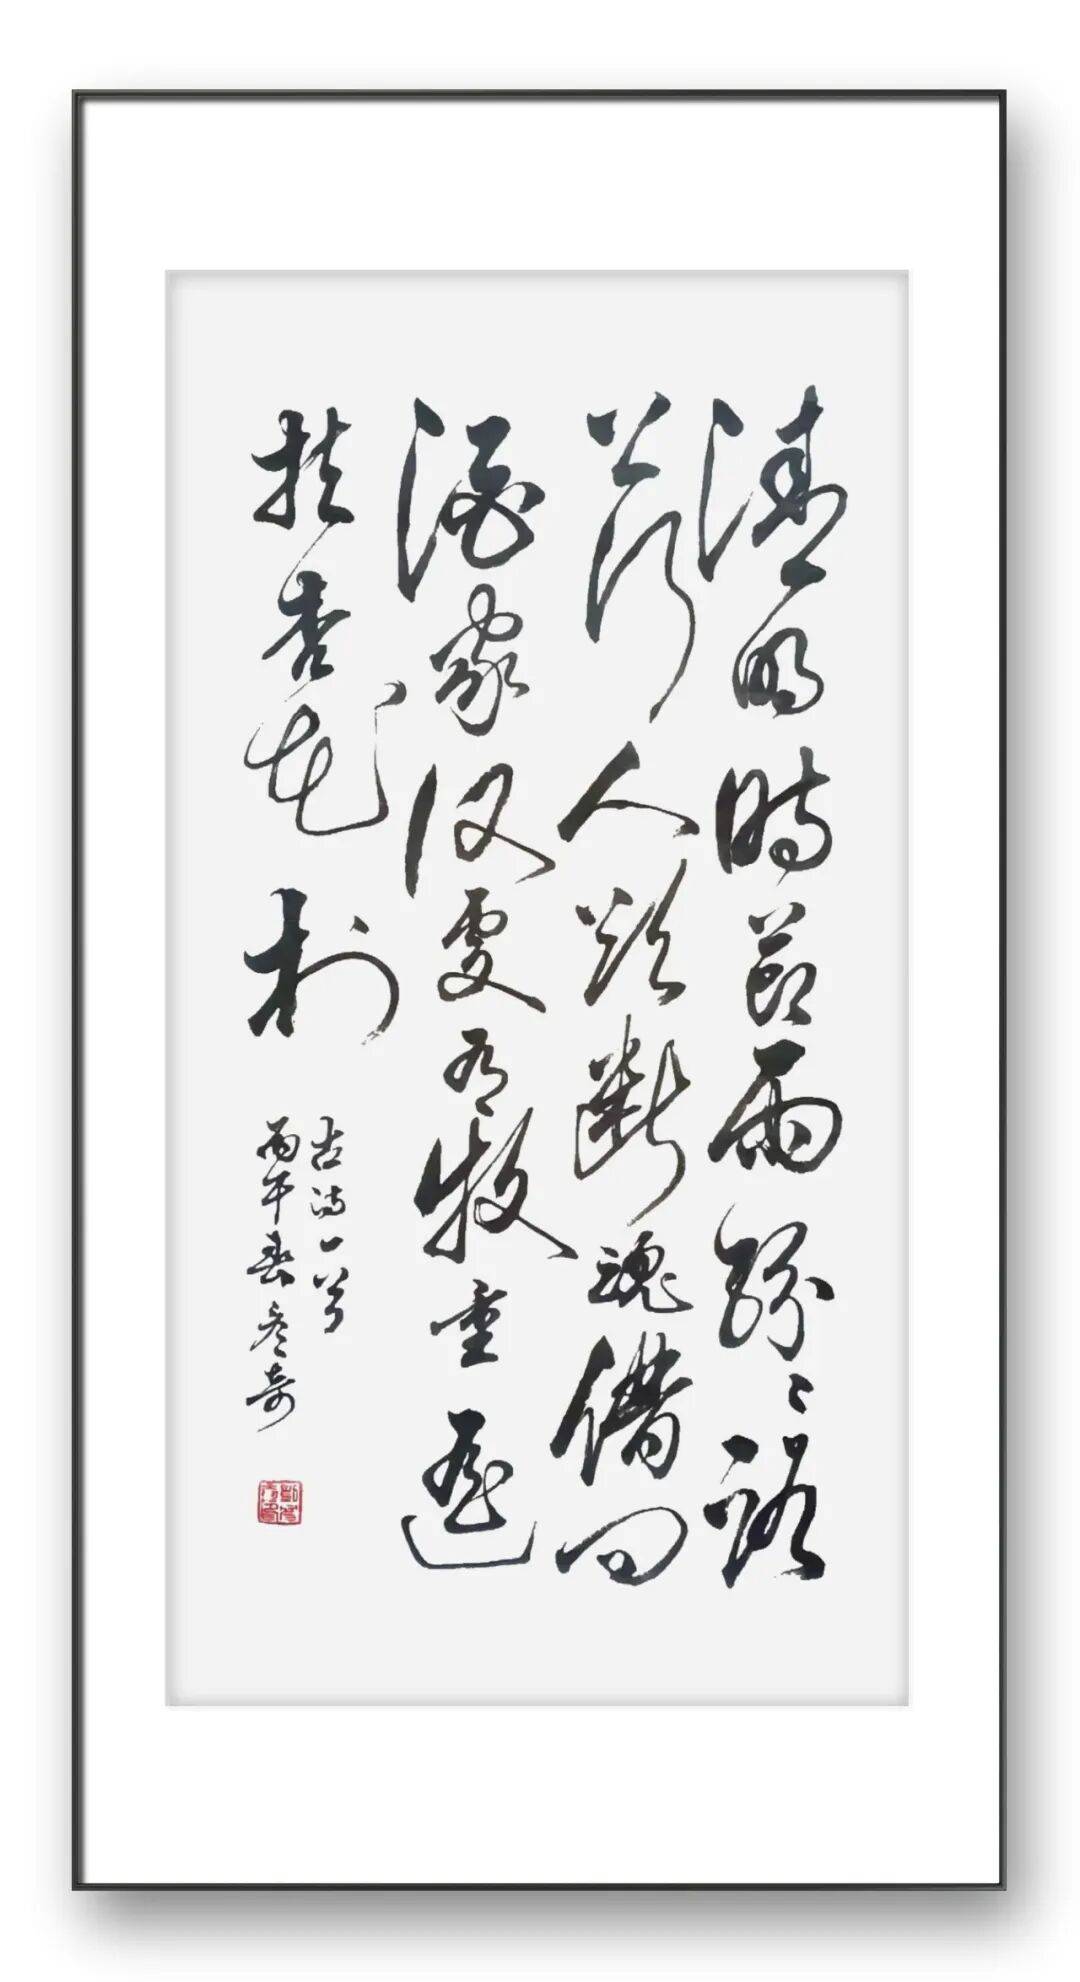 清明時節雨紛〻路
上行人欲斷魂借問
酒家何處有牧童遥
指杏花村
古诗一首
丙午春